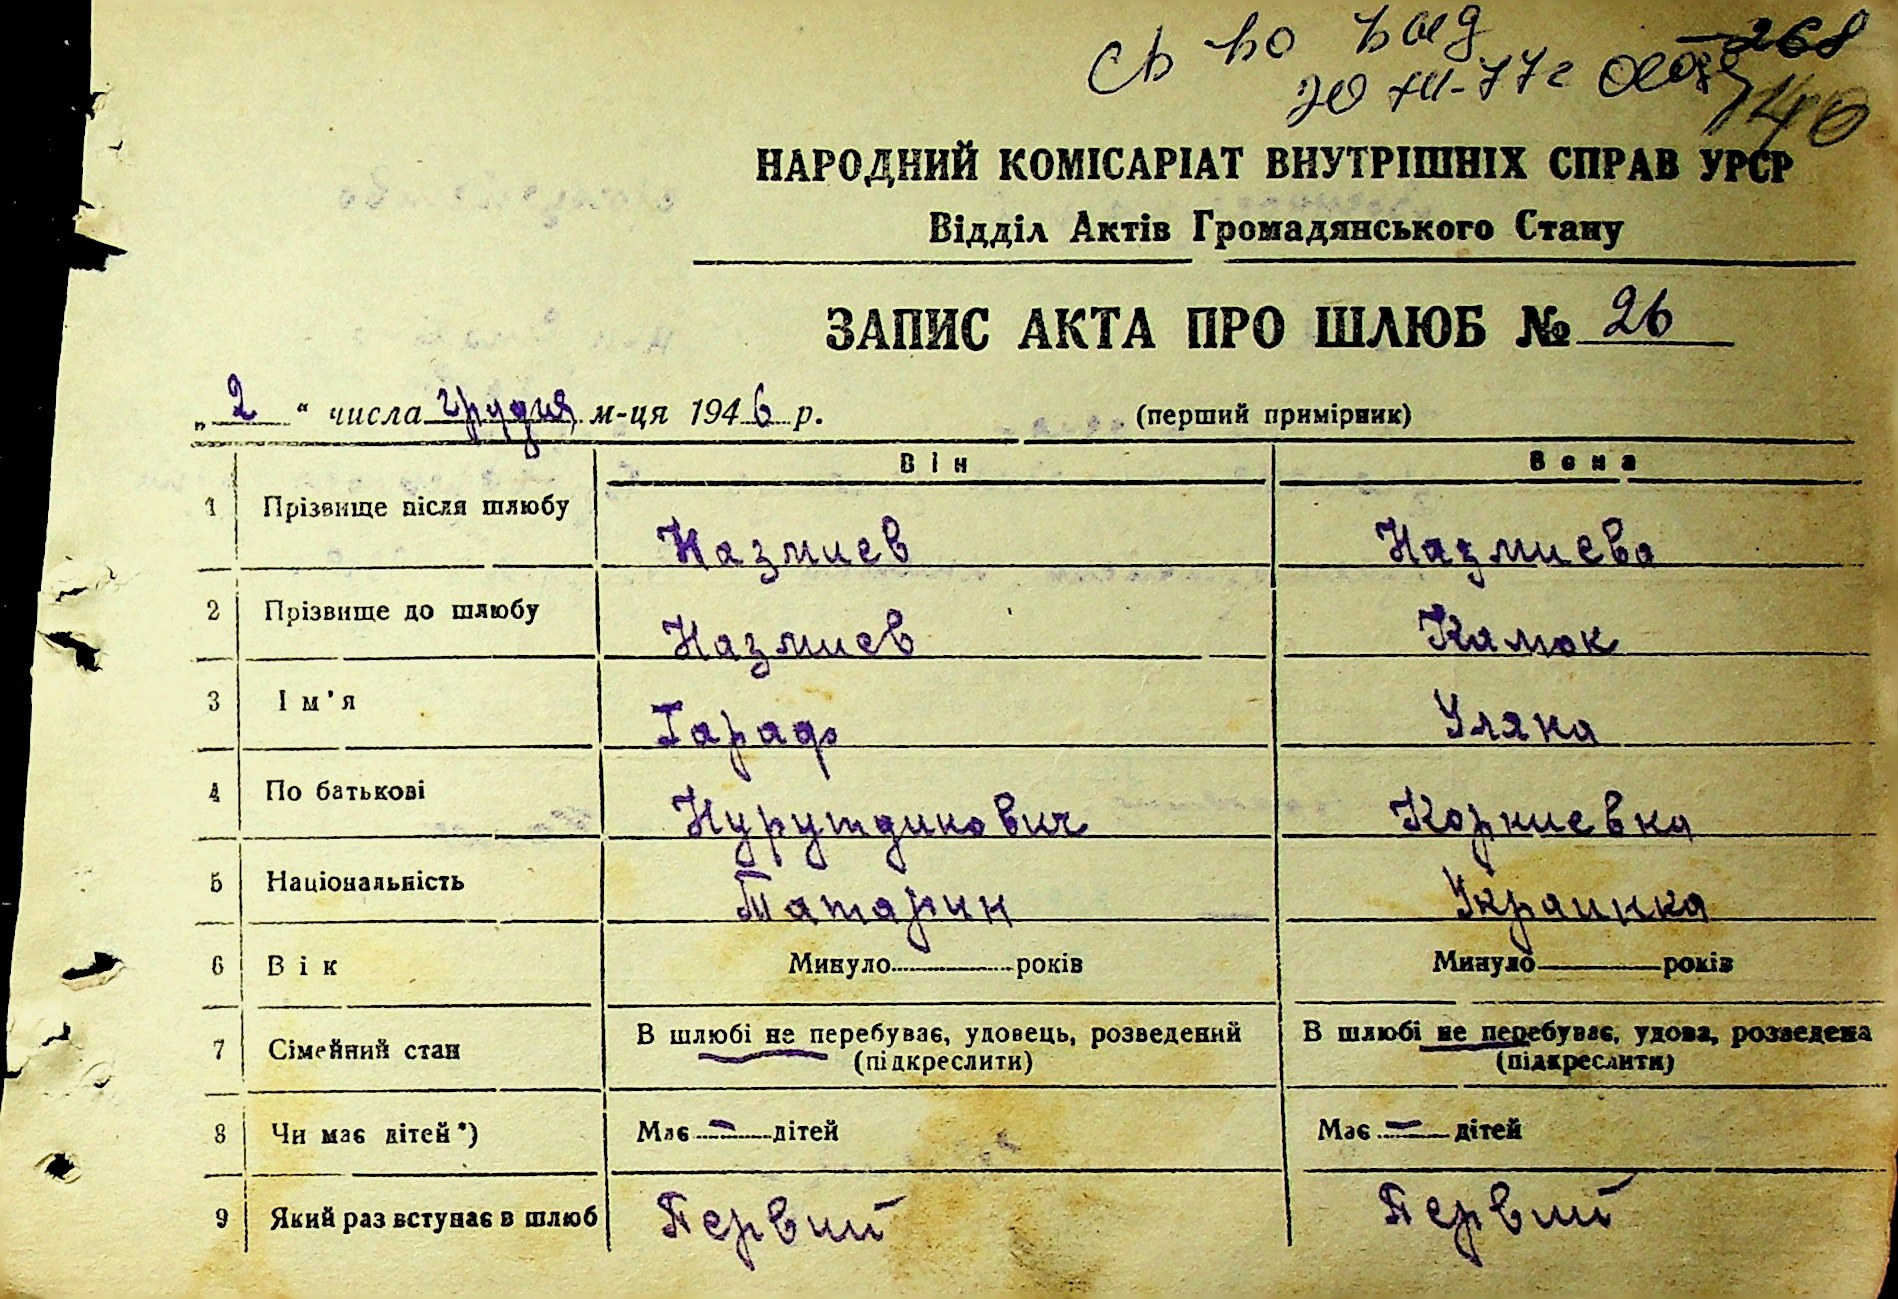 Св во выд 268
20 XII-77г 140
НАРОДНИЙ КОМІСАРІАТ ВНУТРІШНІХ СПРАВ УРСР
Відділ Актів Громадянського Стану
ЗАПИС АКТА ПРО ШЛЮБ № 26
„ 2 “ числа грудня м-ця 1946 р. (перший примірник)
Він Вона
1 Прізвище після шлюбу Назмиев Назмиева
2 Прізвище до шлюбу Назмиев Камок
3 Ім'я Гараф Уляна
4 По батькові Нурутдинович Корниевна
5 Національність Татарин Украинка
6 Вік Минуло ... років Минуло ... років
7 Сімейний стан В шлюбі не перебуває, удовець, розведений В шлюбі не перебуває, удова, розведена
(підкреслити) (підкреслити)
8 Чи має дітей*) Має — дітей Має — дітей
9 Який раз вступає в шлюб Первий Первий